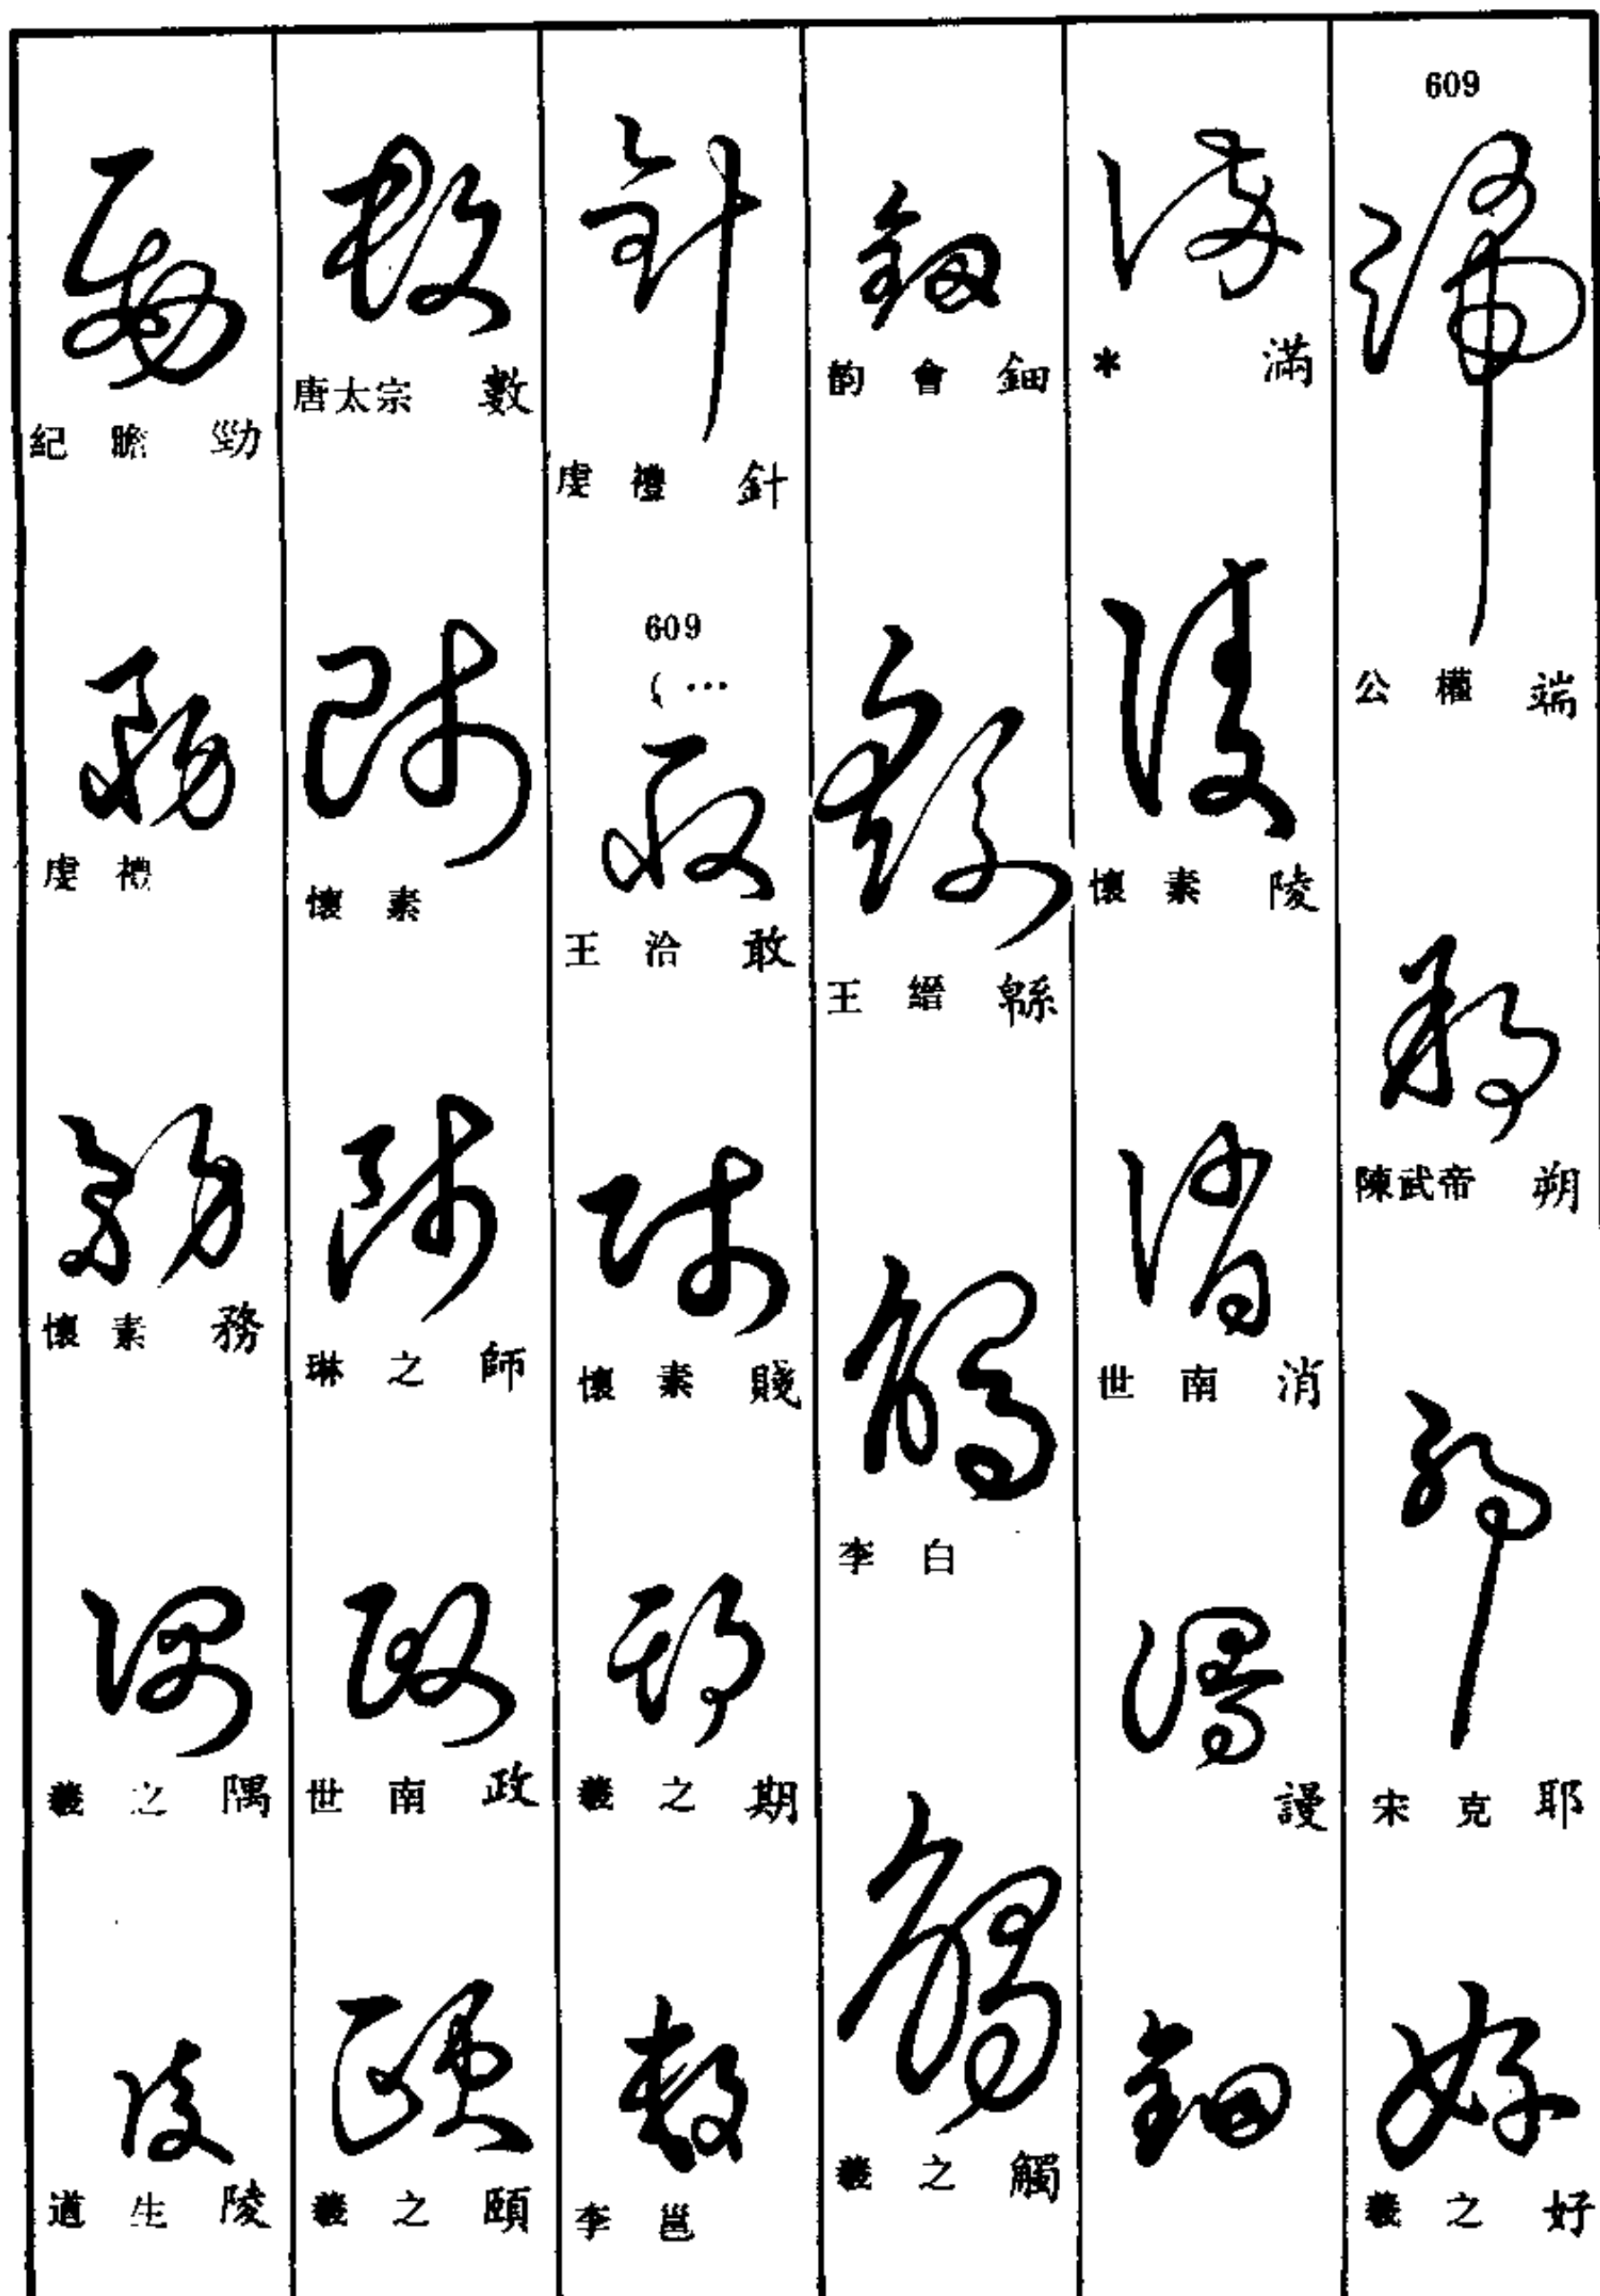 609
公權 端
陳武帝 朔
宋克 耶
羲之 好
* 滿
懷素 陵
世南 消
謾
韵會 鈿
王縉 緜
李白
羲之 觸
虔禮 針
609
(…
王洽 敢
懷素 賤
羲之 期
李邕
唐太宗 數
懷素
琳之 師
世南 政
羲之 頤
紀瞻 勁
虔禮
懷素 務
羲之 隅
道生 陵